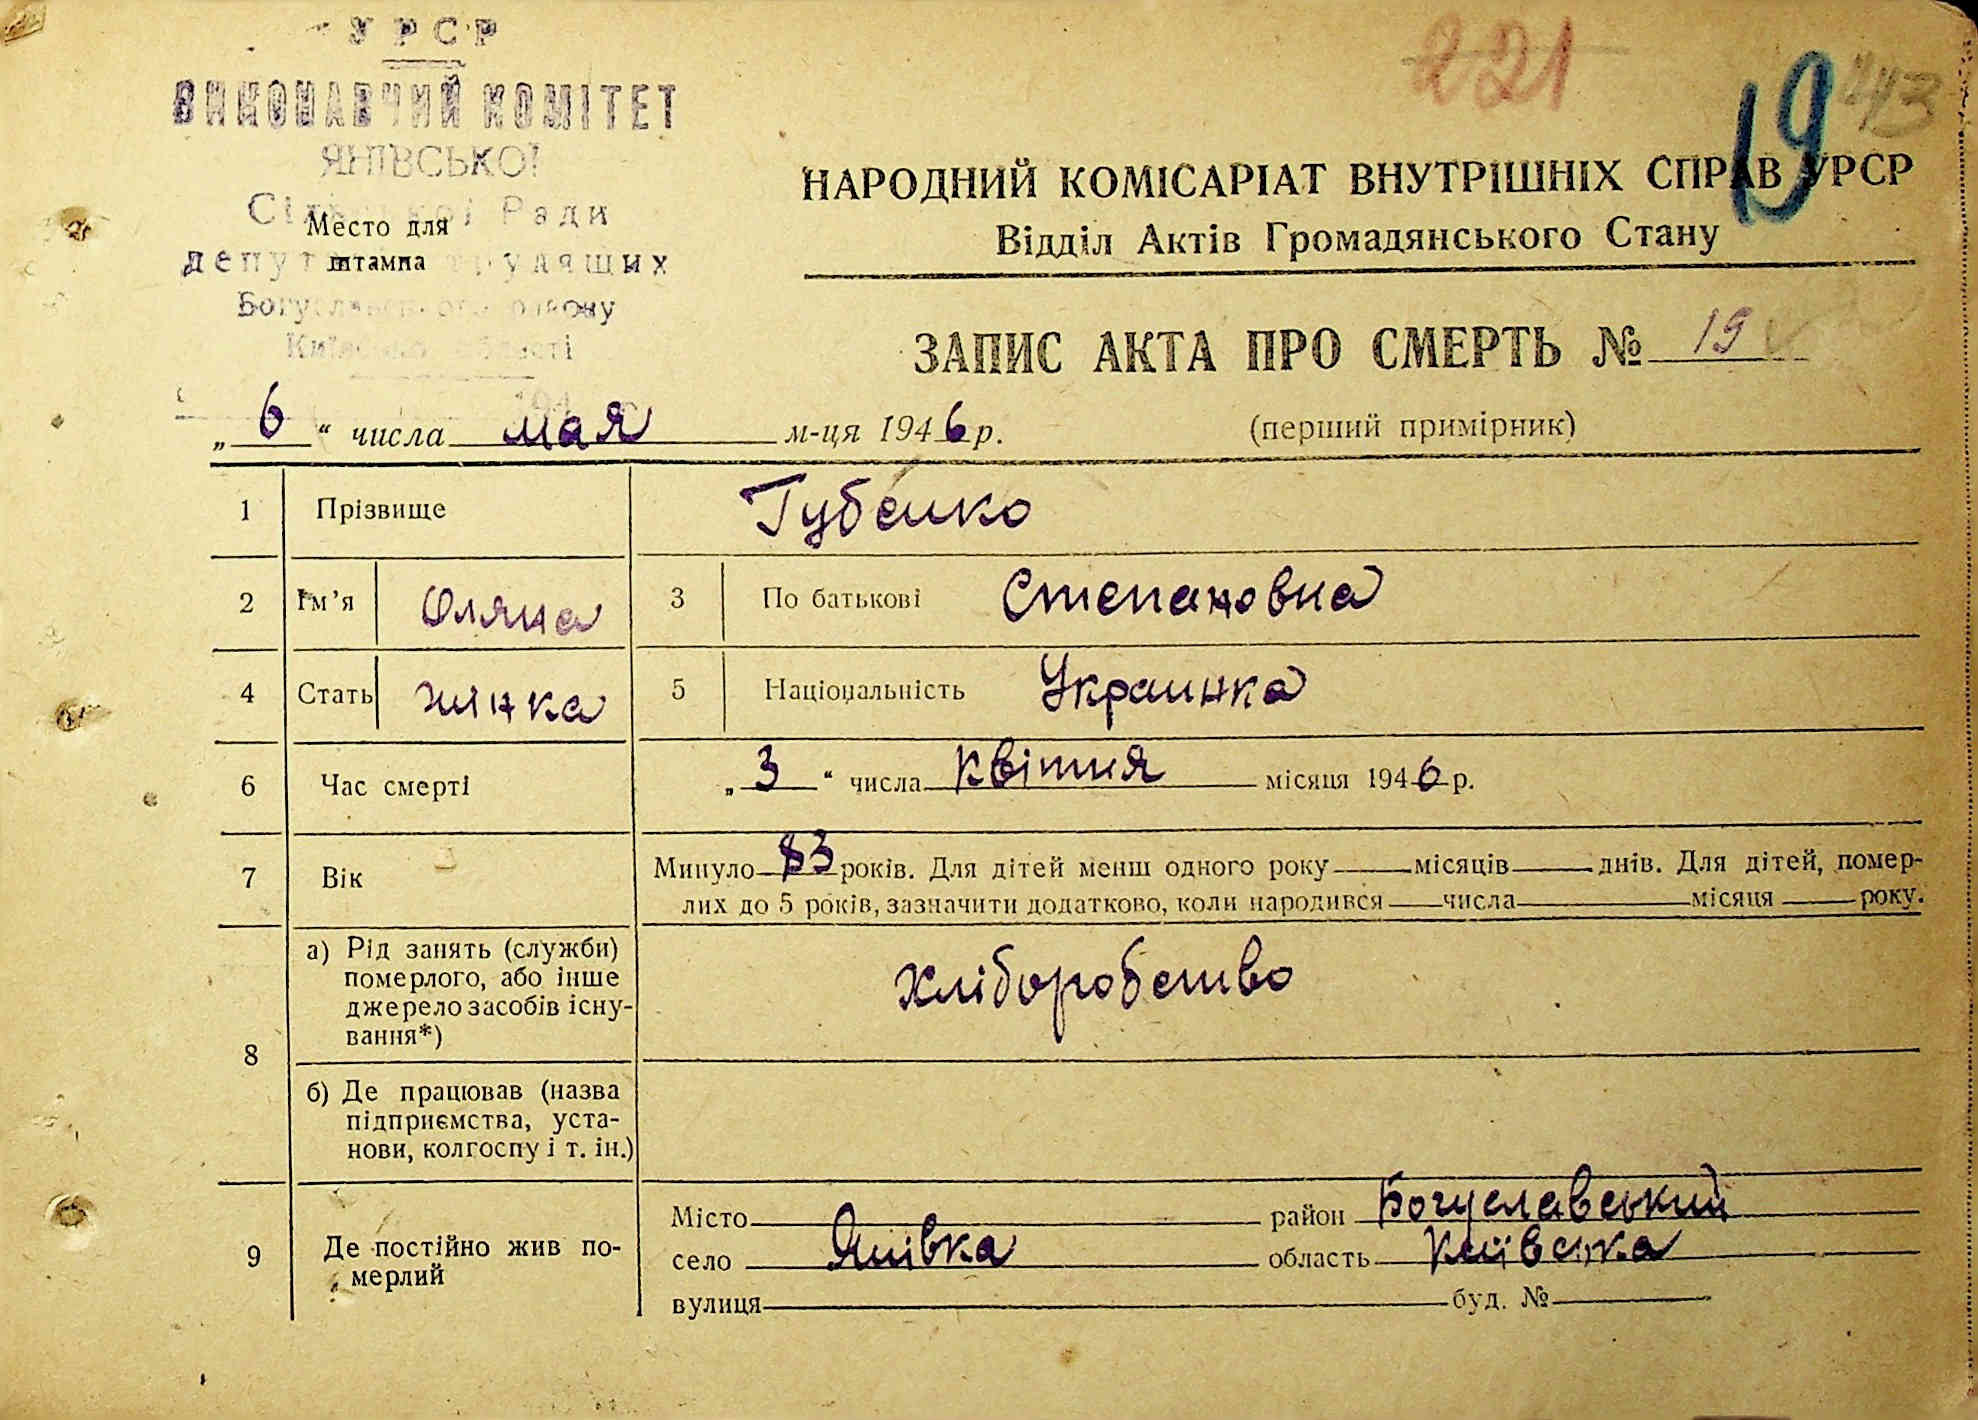 УРСР
ВИКОНАВЧИЙ КОМІТЕТ
ЯНІВСЬКОЇ
Сільської Ради
Место для
депутатів трудящих
штампа
Богуславського району
Київської області
221
19
243
НАРОДНИЙ КОМІСАРІАТ ВНУТРІШНІХ СПРАВ УРСР
Відділ Актів Громадянського Стану
ЗАПИС АКТА ПРО СМЕРТЬ № 19
„ 6 “ числа мая м-ця 1946 р.
(перший примірник)
1 Прізвище Губенко
2 Ім’я Оляна 3 По батькові Степановна
4 Стать жінка 5 Національність Украинка
6 Час смерті „ 3 “ числа квітня місяця 1946 р.
7 Вік Минуло 83 років. Для дітей менш одного року місяців днів. Для дітей, помер-
лих до 5 років, зазначити додатково, коли народився числа місяця року.
8 а) Рід занять (служби)
померлого, або інше
джерело засобів існу-
вання*)
Хліборобство
б) Де працював (назва
підприємства, уста-
нови, колгоспу і т. ін.)
9 Де постійно жив по-
мерлий
Місто район Богуславський
село Янівка область Київська
вулиця буд. №